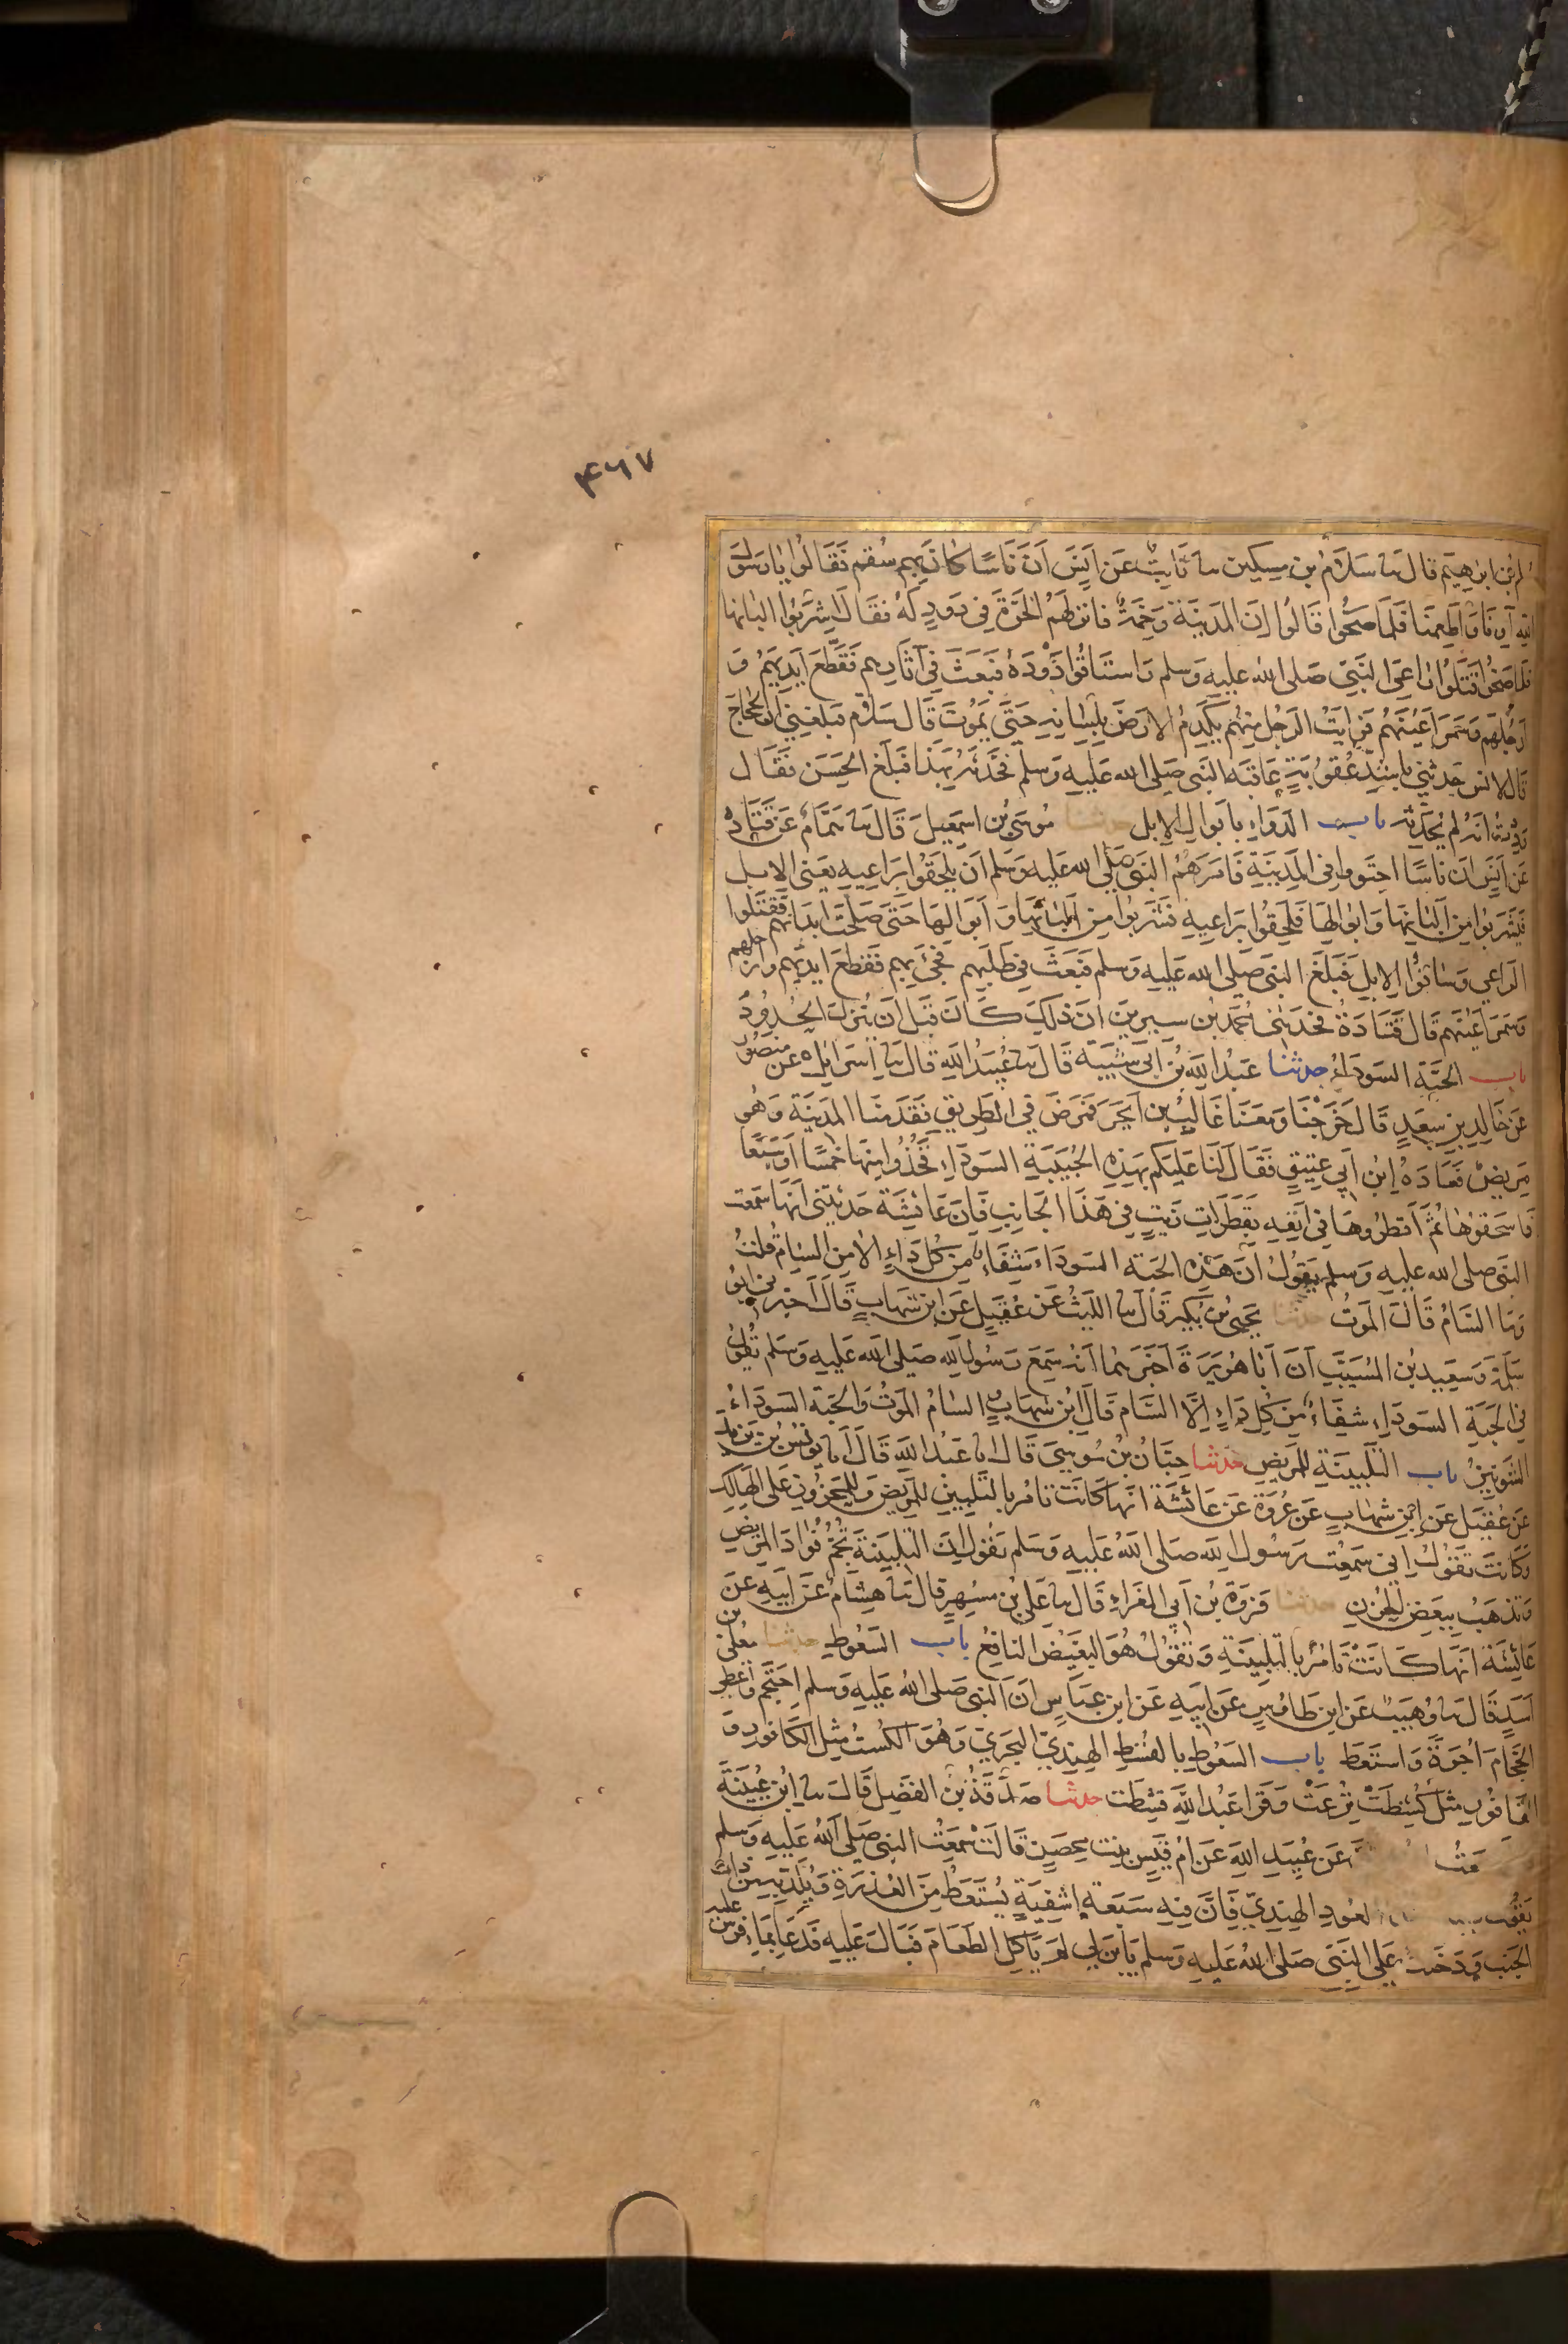 ۴۶۷
بن ابراهيم قال نا سلام بن مسكين نا ثابت عن انس ان ناسا كان بهم سقم فقالوا يا رسول
الله آونا واطعمنا فلما صحوا قالوا ان المدينة وخمة فانزلهم الحرة في ذود له فقال اشربوا البانها
فلما صحوا قتلوا راعي النبي صلى الله عليه وسلم واستاقوا ذوده فبعث في آثارهم فقطع ايديهم و
ارجلهم وسمر اعينهم فرايت الرجل منهم يكدم الارض بلسانه حتى يموت قال سلام فبلغني ان الحجاج
قال لانس حدثني باشد عقوبة عاقبه النبي صلى الله عليه وسلم فحدثه بهذا فبلغ الحسن فقال
وددت انه لم يحدثه باب الدواء بابوال الابل حدثنا موسى بن اسمعيل قال نا همام عن قتادة
عن انس ان ناسا اجتووا في المدينة فامرهم النبي صلى الله عليه وسلم ان يلحقوا براعيه يعني الابل
فيشربوا من البانها وابوالها فلحقوا براعيه فشربوا من البانها وابوالها حتى صلحت ابدانهم فقتلوا
الراعي وساقوا الابل فبلغ النبي صلى الله عليه وسلم فبعث في طلبهم فجيء بهم فقطع ايديهم وارجلهم
وسمر اعينهم قال قتادة فحدثني محمد بن سيرين ان ذلك كان قبل ان تنزل الحدود
باب الحبة السوداء حدثنا عبد الله بن ابي شيبة قال نا عبيد الله قال نا اسرائيل عن منصور
عن خالد بن سعد قال خرجنا ومعنا غالب بن ابجر فمرض في الطريق فقدمنا المدينة وهو
مريض فعاده ابن ابي عتيق فقال لنا عليكم بهذه الحبيبة السوداء فخذوا منها خمسا او سبعا
فاسحقوها ثم اقطروها في انفه بقطرات زيت في هذا الجانب فان عائشة حدثتني انها سمعت
النبي صلى الله عليه وسلم يقول ان هذه الحبة السوداء شفاء من كل داء الا من السام قلت
وما السام قال الموت حدثنا يحيى بن بكير قال نا الليث عن عقيل عن ابن شهاب قال اخبرني ابو
سلمة وسعيد بن المسيب ان ابا هريرة اخبرهما انه سمع رسول الله صلى الله عليه وسلم يقول
في الحبة السوداء شفاء من كل داء الا السام قال ابن شهاب السام الموت والحبة السوداء
الشونيز باب التلبينة للمريض حدثنا حبان بن موسى قال انا عبد الله قال انا يونس بن يزيد
عن عقيل عن ابن شهاب عن عروة عن عائشة انها كانت تامر بالتلبين للمريض وللمحزون على الهالك
وكانت تقول اني سمعت رسول الله صلى الله عليه وسلم يقول ان التلبينة تجم فؤاد المريض
وتذهب ببعض الحزن حدثنا فروة بن ابي المغراء قال نا علي بن مسهر قال نا هشام عن ابيه عن
عائشة انها كانت تامر بالتلبينة وتقول هو البغيض النافع باب السعوط حدثنا معلى بن
اسد قال نا وهيب عن ابن طاوس عن ابيه عن ابن عباس ان النبي صلى الله عليه وسلم احتجم واعطى
الحجام اجره واستعط باب السعوط بالقسط الهندي البحري وهو الكست مثل الكافور و
القافور مثل كشطت نزعت وقرا عبد الله قشطت حدثنا صدقة بن الفضل قال نا ابن عيينة
عن عبيد الله عن ام قيس بنت محصن قالت سمعت النبي صلى الله عليه وسلم
يقول العود الهندي فان فيه سبعة اشفية يستعط من العذرة ويلد به من ذات
الجنب ودخلت على النبي صلى الله عليه وسلم بابن لي لم ياكل الطعام فبال عليه فدعا بماء فرش عليه